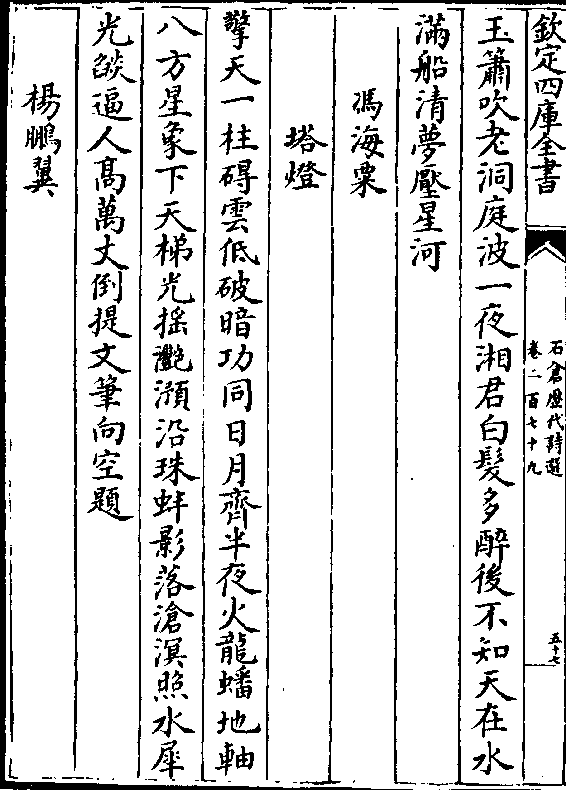 欽定四庫全書
石倉歷代詩選
卷二百七十九
五十七
玉簫吹老洞庭波一夜湘君白髮多醉後不知天在水
滿船清夢壓星河
馮海粟
塔燈
擎天一柱礙雲低破暗功同日月齊半夜火龍蟠地軸
八方星象下天梯光揺灔澦沿珠蚌影落滄溟照水犀
光燄逼人髙萬丈倒提文筆向空題
楊鵬翼